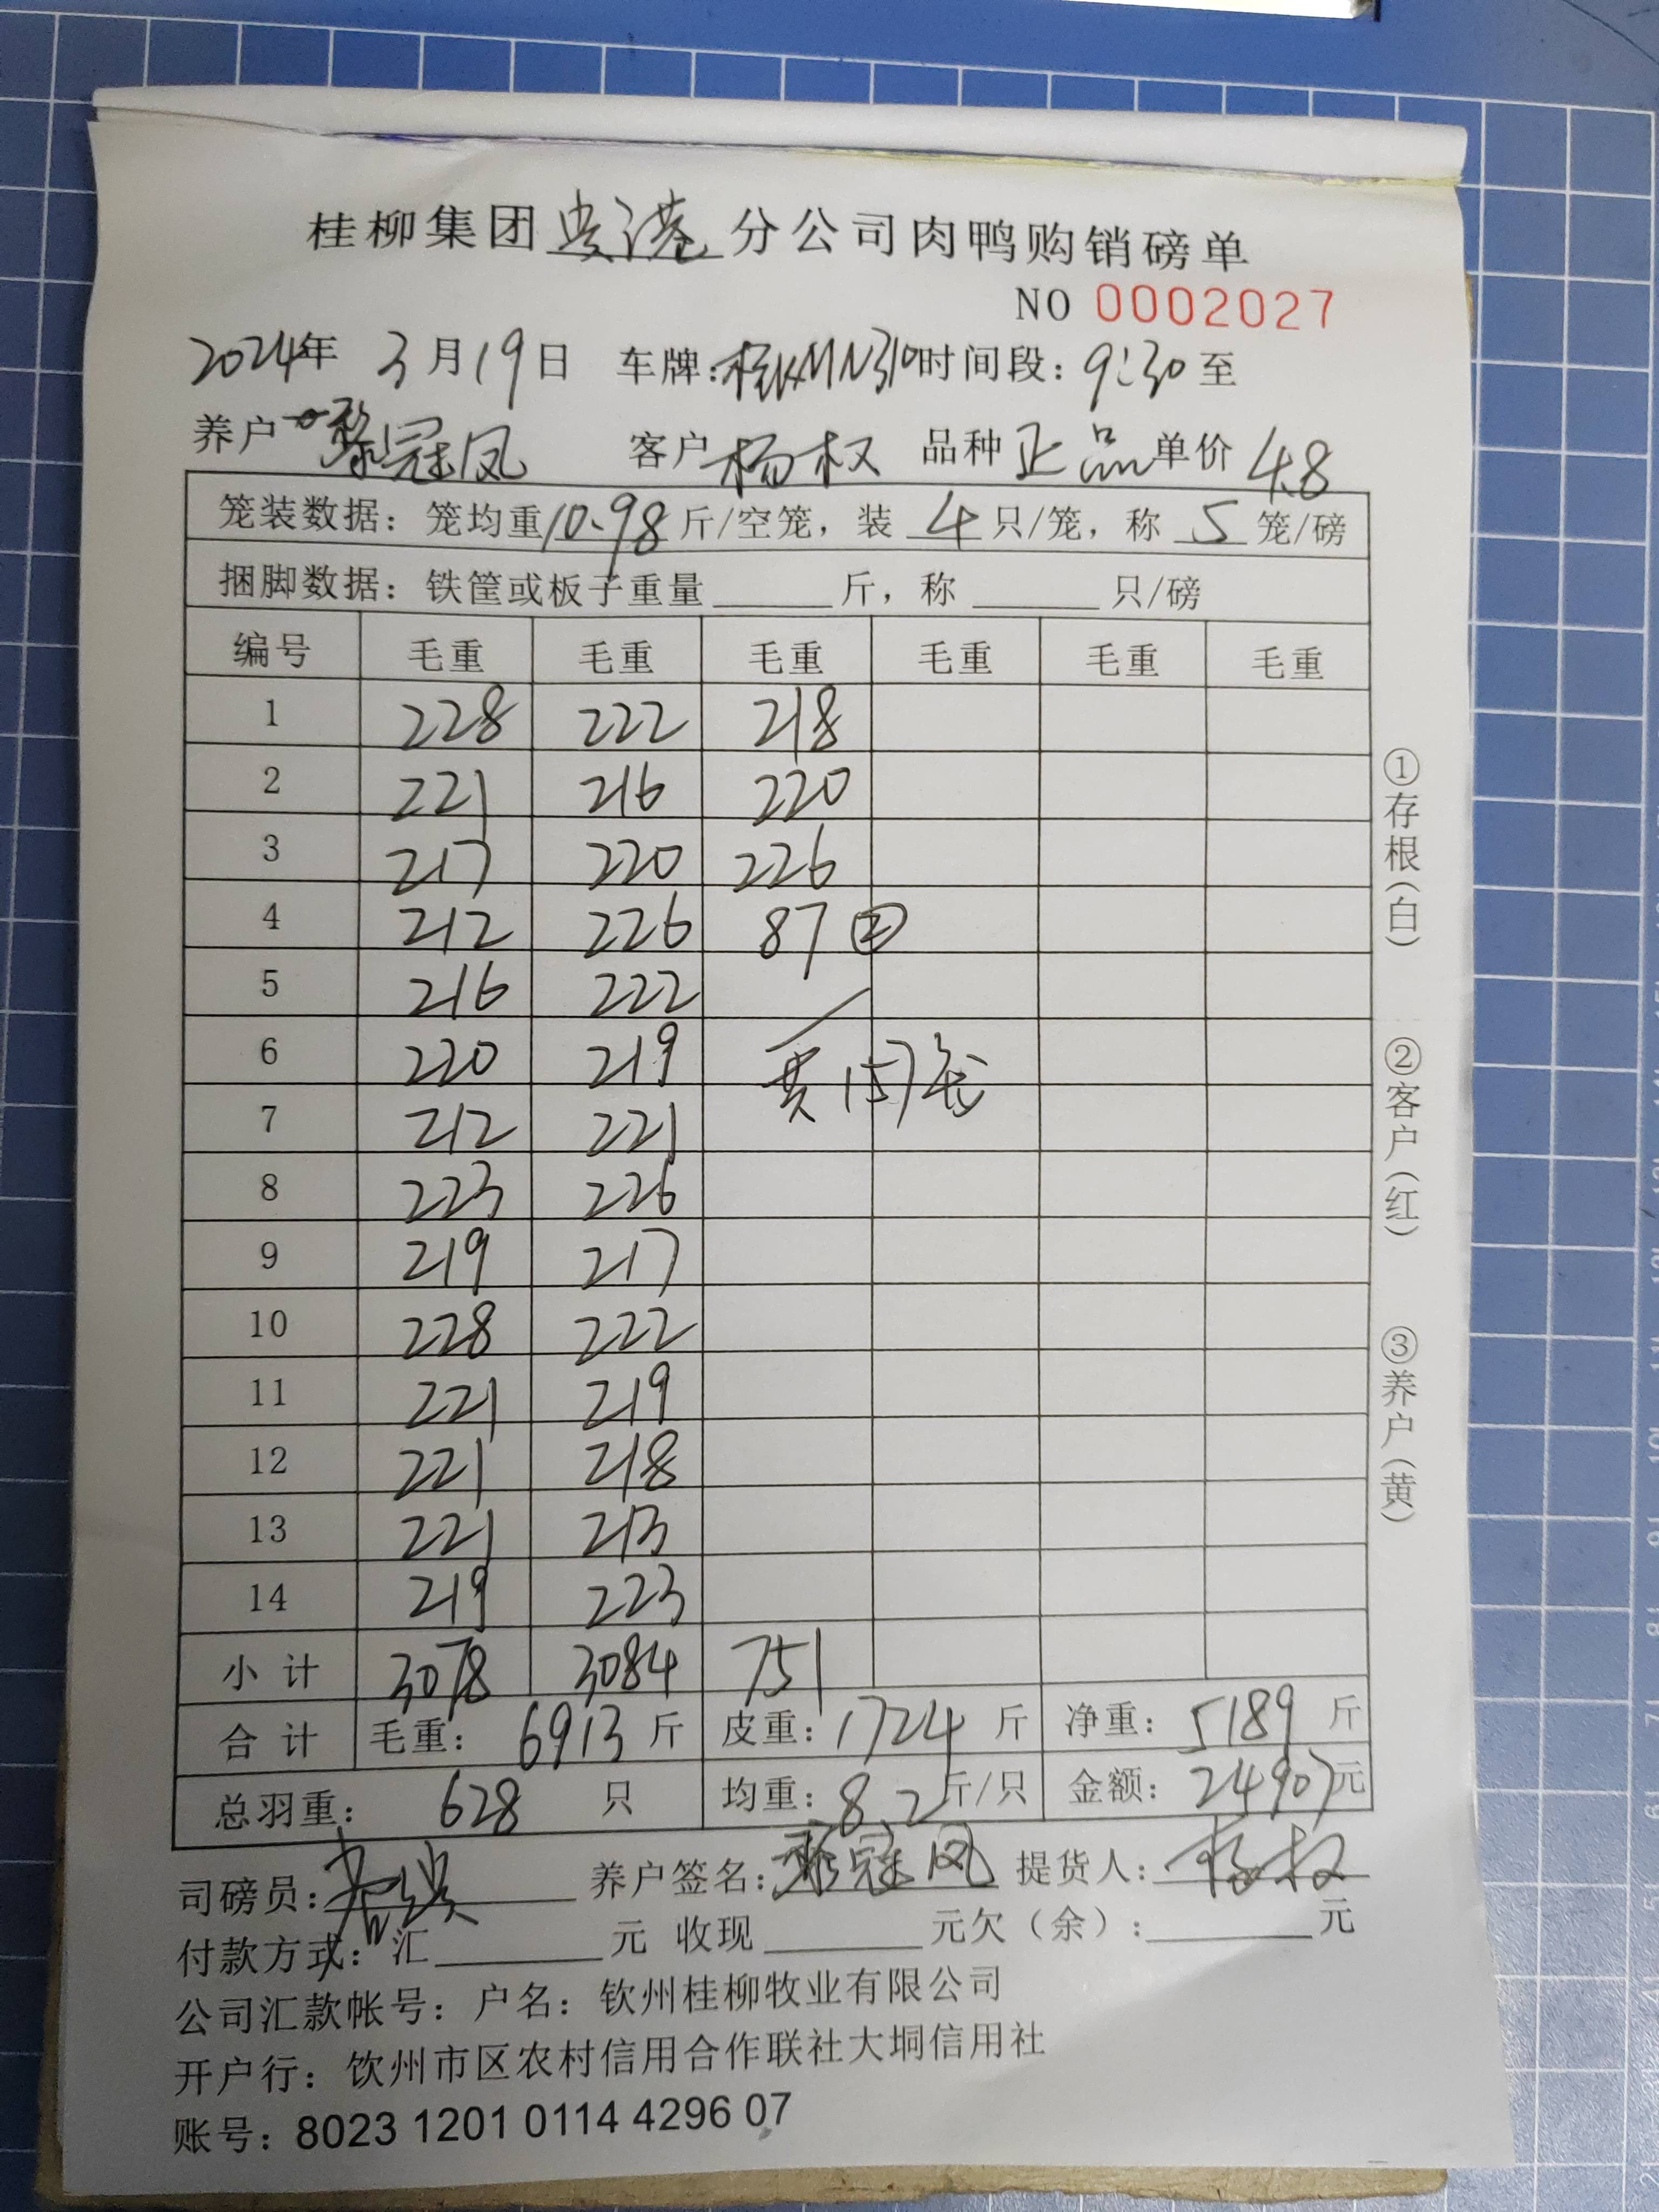 桂柳集团贵港分公司肉鸭购销磅单
NO 0002027
2024年 3月19日 车牌: 时间段：9:30至
养户 黎冠凤 客户 杨权 品种 正品 单价 4.8
笼装数据：笼均重10.98斤/空笼，装 4 只/笼，称 5 笼/磅
捆脚数据：铁筐或板子重量______斤，称______只/磅
编号 毛重 毛重 毛重 毛重 毛重 毛重
1 228 222 218
2 221 216 220
3 217 220 226
4 212 226 87 ②
5 216 222
6 220 219 共157笼
7 212 221
8 223 226
9 219 217
10 228 222
11 221 219
12 221 218
13 221 213
14 219 223
小计 3078 3084 751
合计 毛重：6913斤 皮重：1724斤 净重：5189斤
总羽重：628只 均重：8.2斤/只 金额：24907元
司磅员： 养户签名：黎冠凤 提货人：杨权
付款方式：汇______元 收现______元欠（余）：______元
公司汇款帐号：户名：钦州桂柳牧业有限公司
开户行：饮州市区农村信用合作联社大垌信用社
账号：8023 1201 0114 4296 07
①存根（白）
②客户（红）
③养户（黄）